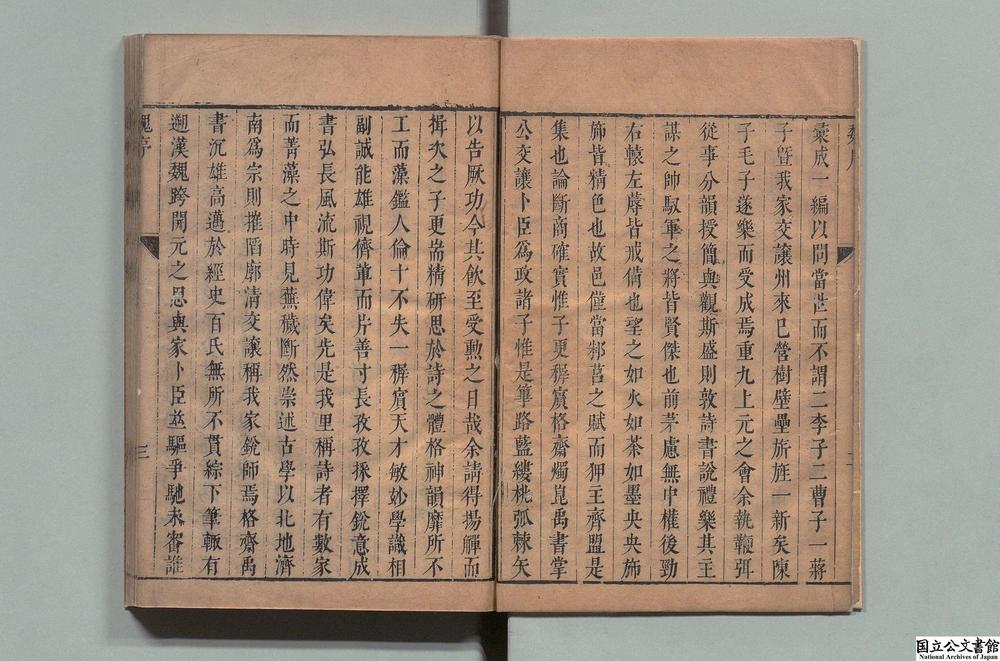 彙成一編以問當世而不謂二李子二曹子一蔣
子暨我家交讓州來已營樹壁壘旂旌一新矣陳
子毛子遂樂而受成焉重九上元之會余執鞭弭
從事分韻授簡與觀斯盛則敦詩書說禮樂其主
謀之帥馭軍之將皆賢傑也前茅慮無中權後勁
右轅左蓐皆戒備也望之如火如荼如墨央央斾
旆皆精色也故邑僅當邾莒之賦而狎主齊盟是
集也論斷商確實惟子更穉賓格齋燭崑禹書掌
公交讓卜臣為政諸子惟是篳路藍縷桃弧棘矢
以告厥功今其飲至受勳之日哉余請得揚觶而
揖次之子更耑精研思於詩之體格神韻靡所不
工而藻鑑人倫十不失一穉賓天才敏妙學識相
副誠能雄視儕輩而片善寸長孜孜採擇銳意成
書弘長風流斯功偉矣先是我里稱詩者有數家
而菁藻之中時見蕪穢斷然崇述古學以北地濟
南為宗則摧陷廓清交讓稱我家銳師焉格齋禹
書沉雄高邁於經史百氏無所不貫綜下筆輙有
遡漢魏跨開元之思與家卜臣並驅爭馳未審誰
序
三
国立公文書館
National Archives of Japan